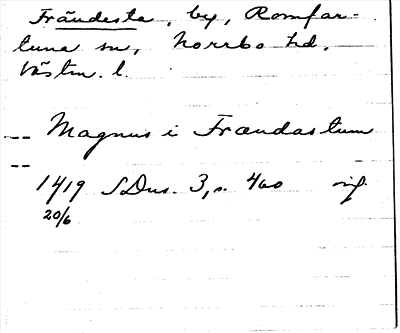 Frändesta, by, Romfar-
tuna sn, Norrbo hd.
Västm. l.
Magnus i Frændastum
1419 SDns. 3, s. 460 orig.
20/6